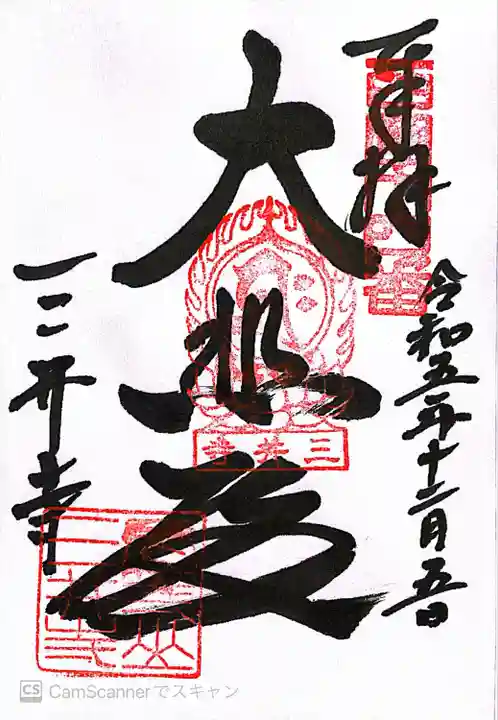 奉拝
令和五年十二月五日
大悲殿
三井寺
三井寺
CS CamScannerでスキャン